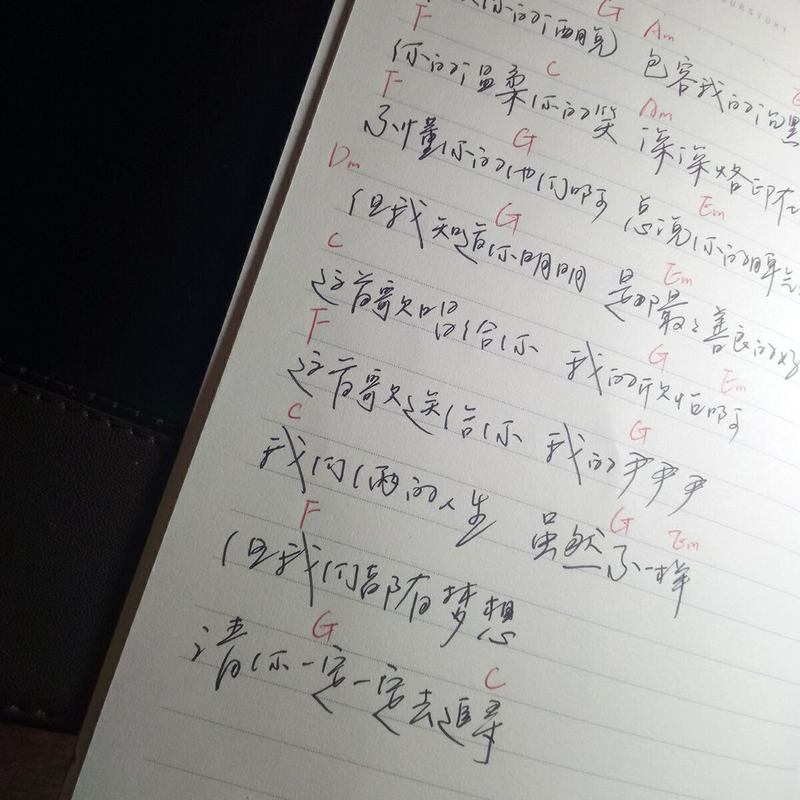 OURSTORY
G Am
包容我的沉默
F C Am
你的温柔你的笑 深深烙印在
F G Em
不懂你的他们啊 总说你的
Dm G Em
但我知道你明明 是那最最善良的好
C G Em
这首歌唱给你 我的欣怡啊
F G
这首歌送给你 我的尹尹尹
C G Em
我们俩的人生 虽然不一样
F
但我们都有梦想
G C
请你一定一定去追寻